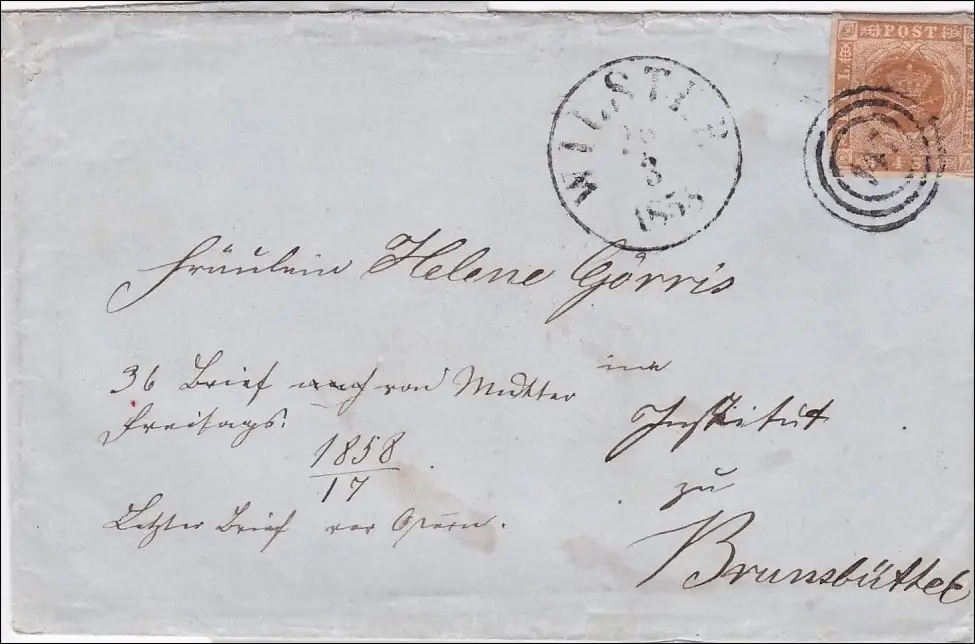 POST
WILSTER
3
1858
Fräulein Helene Görris
im
Institut
zu
Brunsbüttel
36 Brief von Mutter
Freitags.
1858
17
Letzter Brief vor Ostern.